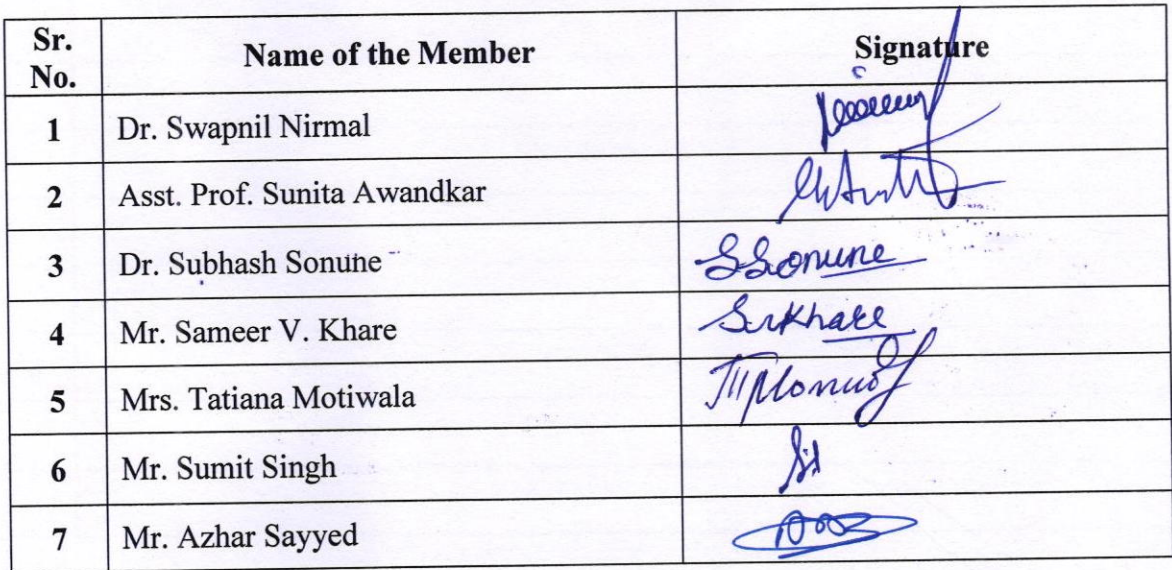 Sr. No. Name of the Member Signature
1 Dr. Swapnil Nirmal
2 Asst. Prof. Sunita Awandkar
3 Dr. Subhash Sonune SSonune
4 Mr. Sameer V. Khare SvKhare
5 Mrs. Tatiana Motiwala
6 Mr. Sumit Singh
7 Mr. Azhar Sayyed